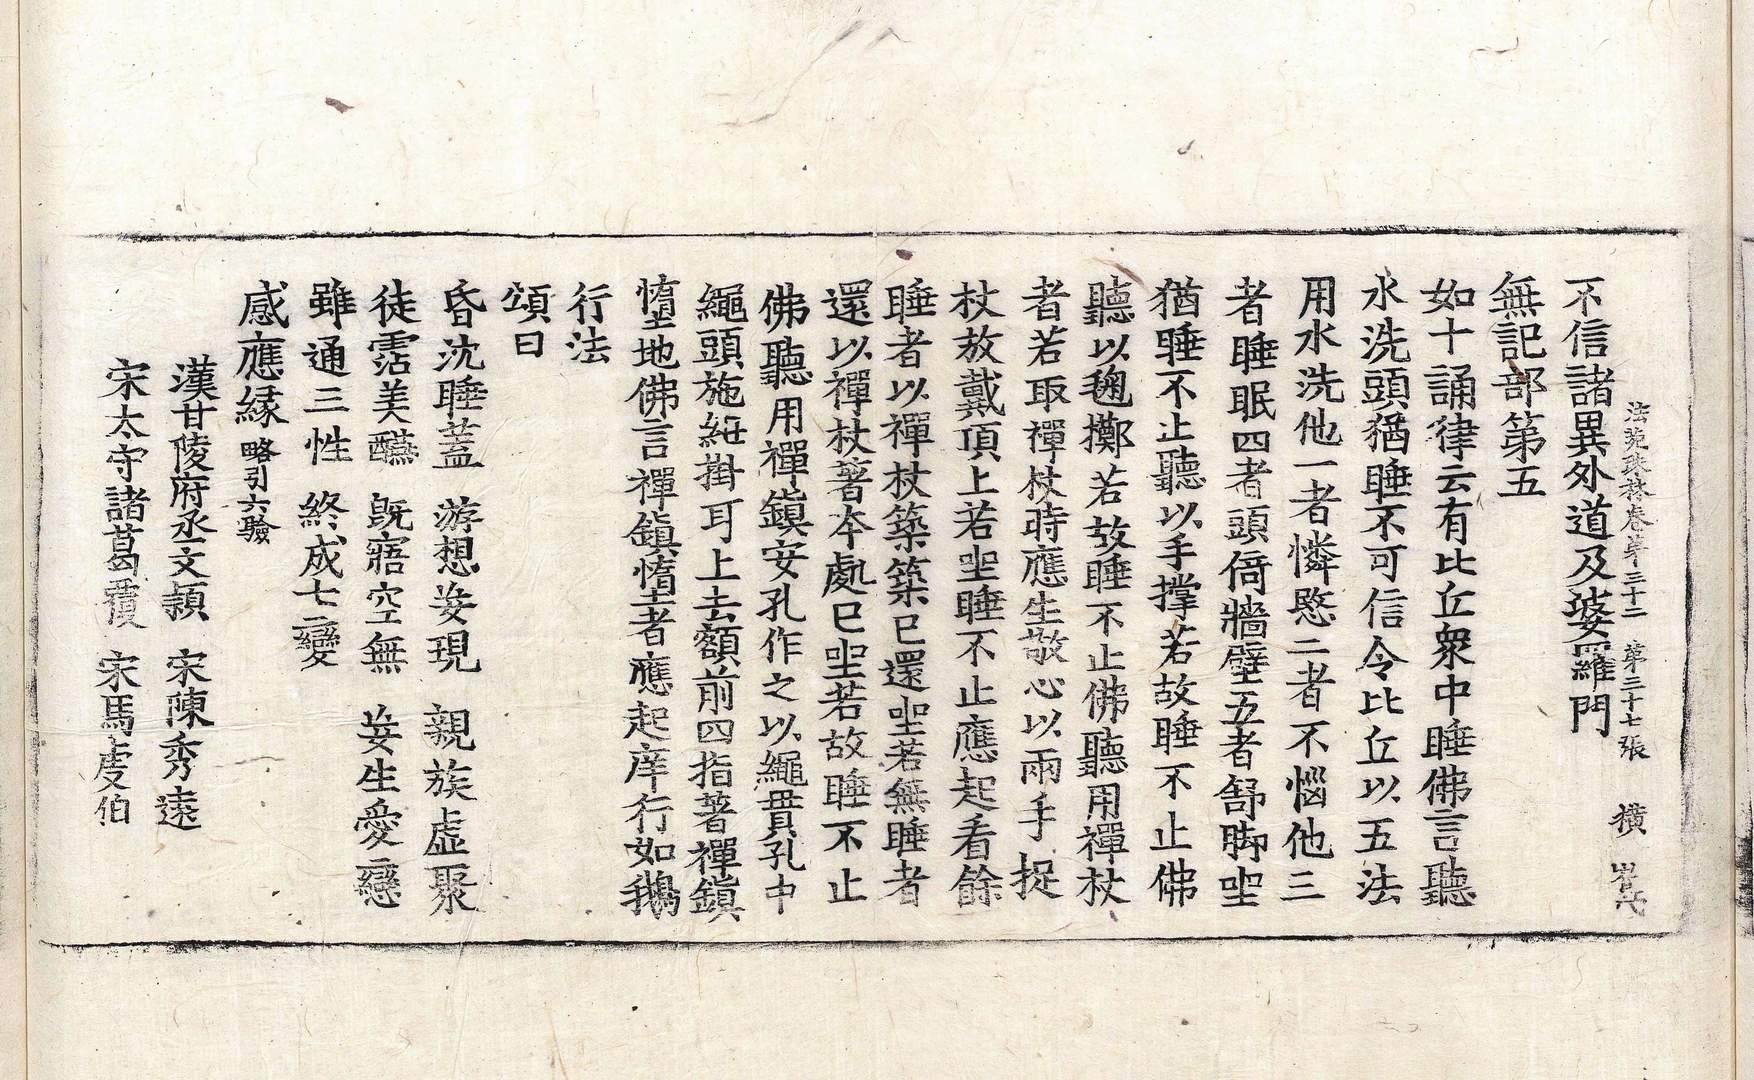 法苑珠林卷第三十二　第三十七張　橫
不信諸異外道及婆羅門
無記部第五
如十誦律云有比丘衆中睡佛言聽
水洗頭猶睡不可信令比丘以五法
用水洗他一者憐愍二者不惱他三
者睡眠四者頭倚牆壁五者舒脚坐
猶睡不止聽以手撑若故睡不止佛
聽以毱擲若故睡不止佛聽用禪杖
者若取禪杖時應生敬心以兩手捉
杖放戴頂上若坐睡不止應起看餘
睡者以禪杖築築已還坐若無睡者
還以禪杖著本處已坐若故睡不止
佛聽用禪鎮安孔作之以繩貫孔中
繩頭施紐掛耳上去額前四指著禪鎮
墮地佛言禪鎮墮者應起庠行如鵝
行法
頌曰
昏沈睡蓋　游想妄現　親族虛聚
徒霑美醼　旣寤空無　妄生愛戀
雖通三性　終成七變
感應緣略引六驗
漢甘陵府丞文穎　宋陳秀遠
宋太守諸葛覆　宋馬虔伯